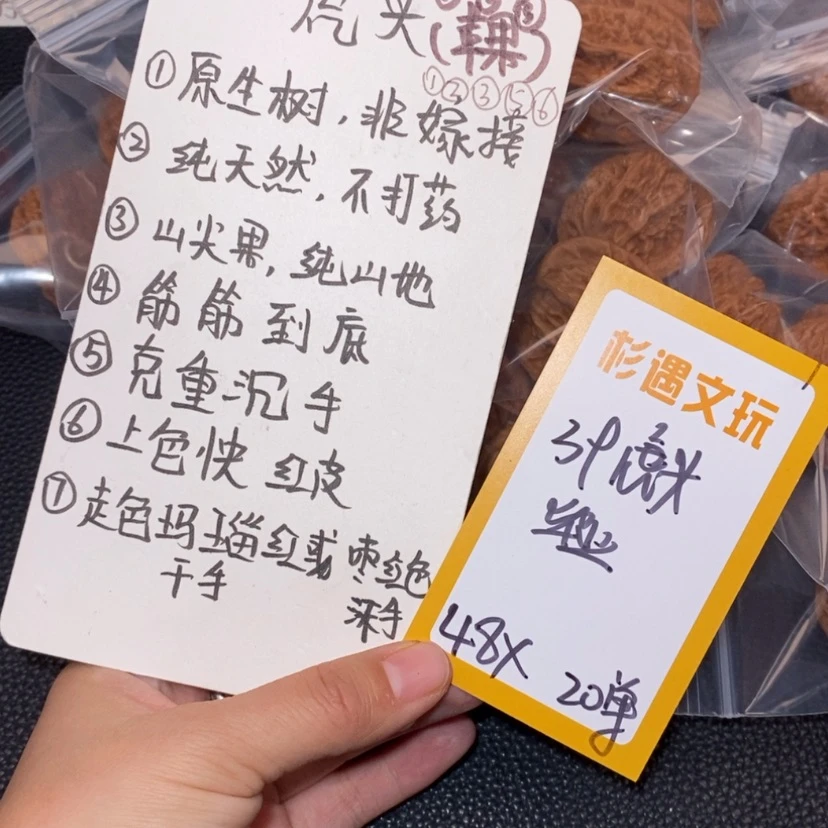 虎头(苹果)
①②③⑤⑥
①原生树，非嫁接
②纯天然，不打药
③山尖果，纯山地
④筋筋到底
⑤克重沉手
⑥上色快 红皮
⑦走色玛瑙红或枣红色
干手
深手
杉遇文玩
39虎头
48X 20单